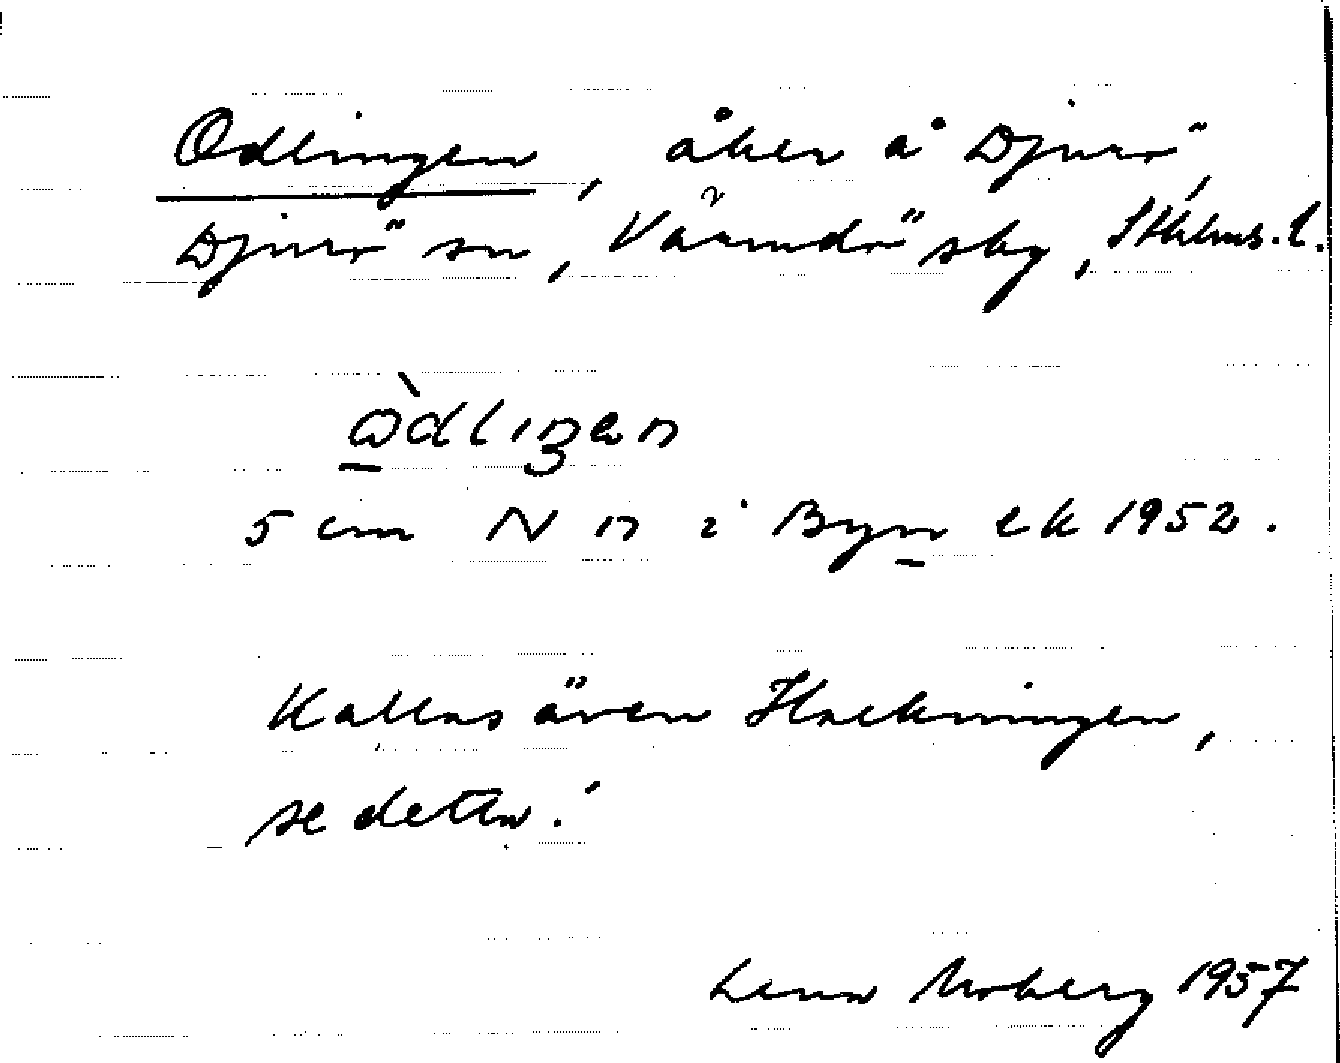 Odlingen, åker å Djurö,
Djurö sn, Värmdö skg, Sthlms. l.
ὼdlıŋen
5 cm N n i Byn ek 1952.
Kallas även Hackningen,
se detta!
Lena Moberg 1957